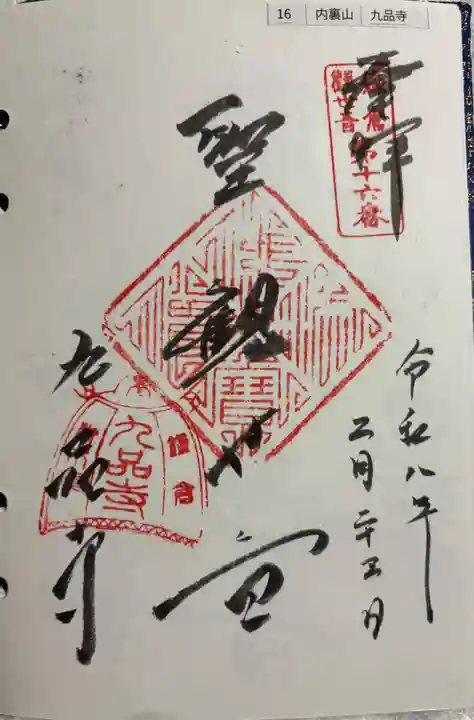 16 内裏山 九品寺
奉拝
鎌倉
観世音
第十六番
聖観世音
令和八年
二月二十三日
九品寺
鎌倉
九品寺